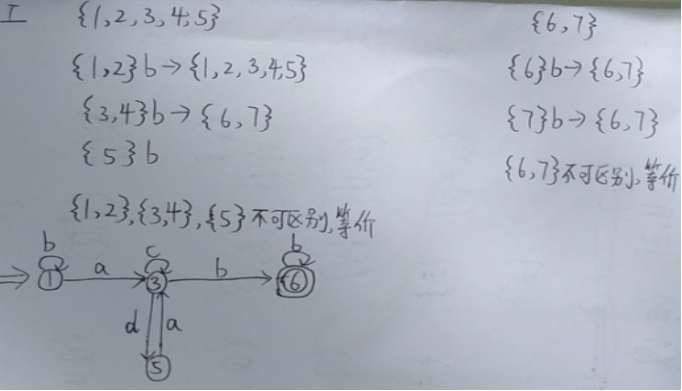 工 {1,2,3,4,5} {6,7}
{1,2}b→{1,2,3,4,5} {6}b→{6,7}
{3,4}b→{6,7} {7}b→{6,7}
{5}b {6,7}不可区别,等价
{1,2},{3,4},{5}不可区别,等价
b c b
⇒ 1 a 3 b 6
d a
5